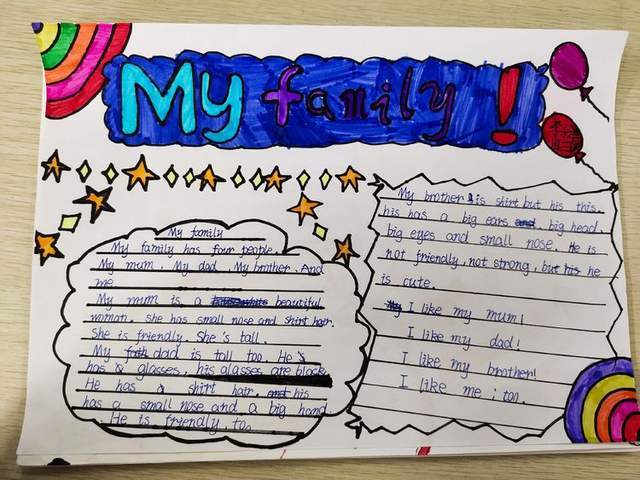 My family!
My family
My family has four people.
My mum. My dad. My brother. And
me
My mum is a beautiful
woman. She has small nose and shirt hair.
She is friendly. She's tall.
My dad is tall too. He's
has a glasses, his glasses are black
He has a shirt hair. his
has a small nose and a big hand
He is friendly, too.
My brother is shirt but his this.
his has a big ears big head,
big eyes and small nose. He is
not friendly, not strong, but his he
is cute.
I like my mum!
I like my dad!
I like my brother!
I like me, too.